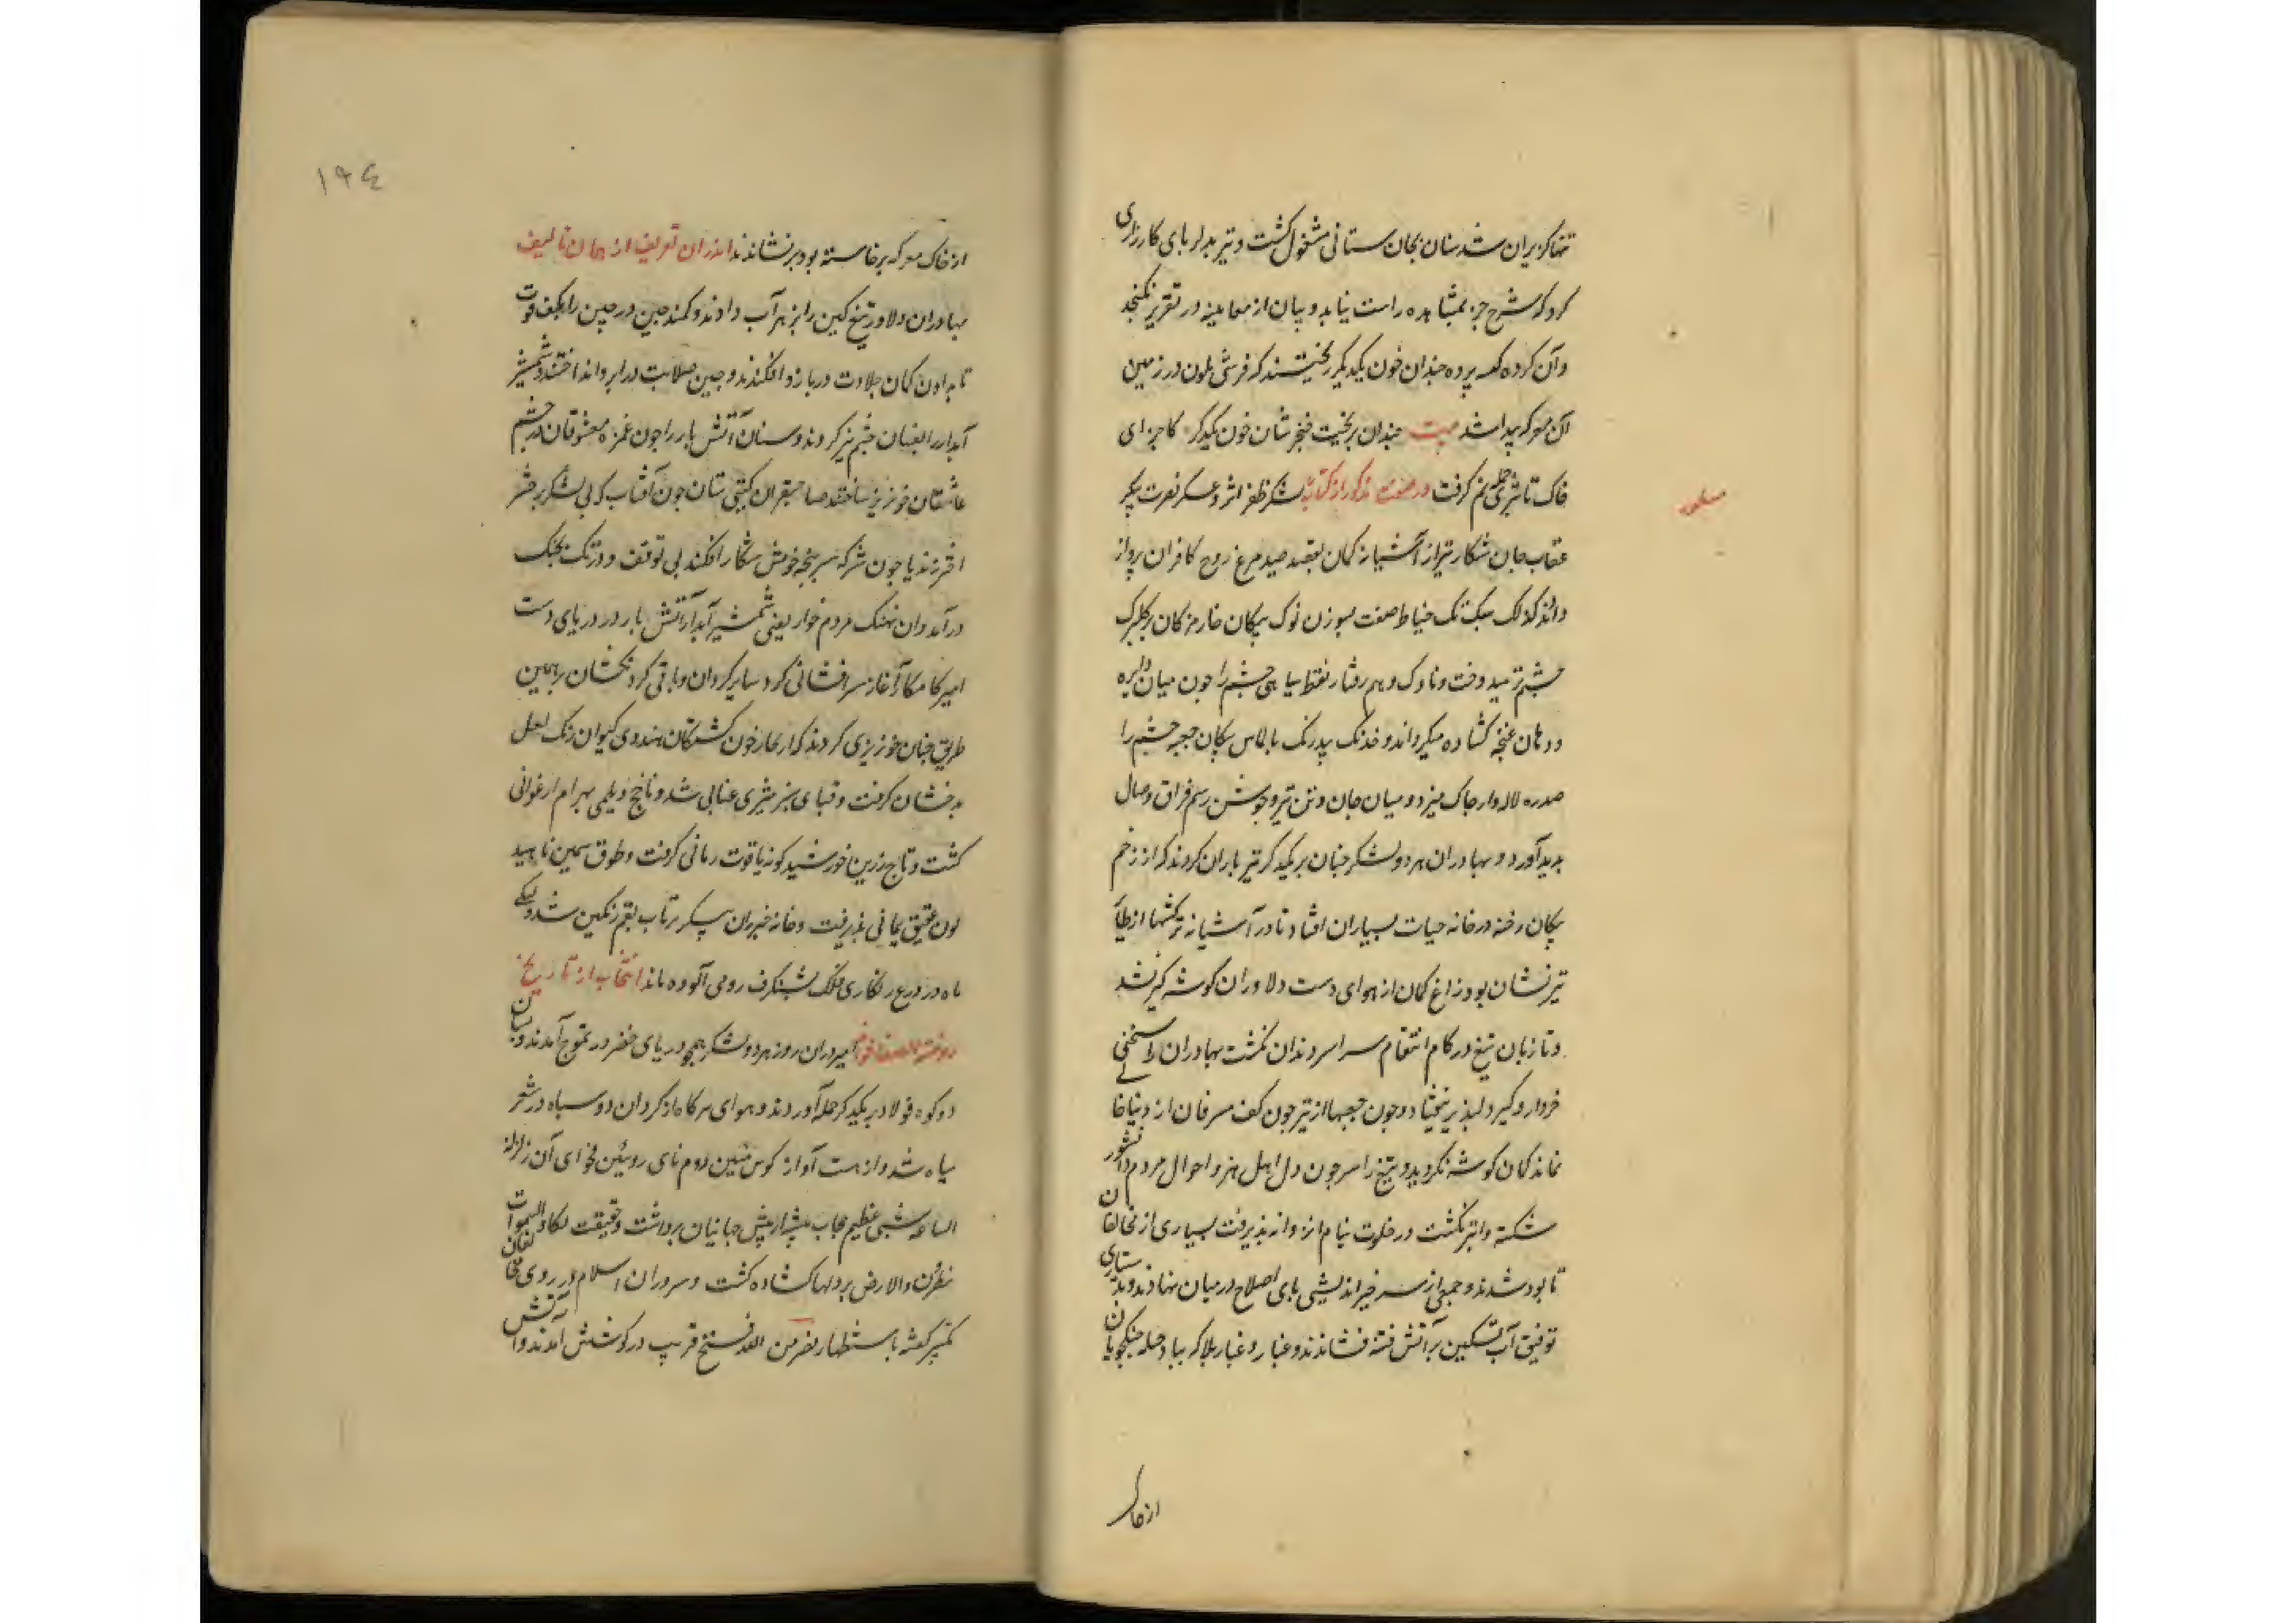 تنها کریزان شد سنان بجان ستانی مشغول کشت و تیر بدلربای کارزاری
کرد که شرح جز بمشاهده راست نیاید و بیان از معاینه در تقریر نکنجد
وآن کروه چندان خون یکدیکر ریختند که فرشی ملون در زمین
آن معرکه پیدا شد بیت چندان بریخت خنجر شان خون یکدکر کاجزای
خاک تا ثری جمله نم کرفت در صفت مذکور از کتاب لشکر ظفر اثر و عسکر نصرت پیکر
عقاب جان شکار تیر از آشیانه کمان بقصد صید مرغ روح کافران پرواز
دادند کلک سبک تک خیاط صفت بسوزن نوک پیکان خار مژکان بر کلبرک
چشم تر میدوخت و ناوک وهم رفتار نقطه سیاهی چشم را چون میان دایره
و دهان غنچه کشاده میکرداند و خدنک بیدرنک بالماس پیکان جیب چشم را
صدره لاله وار چاک میزد و میان جان و تن تیر و جوشن رسم فراق و وصال
پدید آورد و بهادران هر دو لشکر چنان بر یکدیکر تیر باران کردند که از زخم
پیکان رخنه در خانه حیات بسیاران افتاد تا در آشیانه ترکشها از طایر
تیر نشان بود زاغ کمان از هوای دست دلاوران کوشه کیر نشد
و تا زبان تیغ در کام انتقام سراسر دندان نکشت بهادران را سخنی
خردار و کیر دلپذیر نیفتاد و چون جعبها از تیر چون کف مسرفان از دینار خا
نماند کمان کوشه نکردید و تیغ را سر چون دل اهل هنر و احوال مردم دانشور
شکسته و ابتر نکشت در خلوت نیام انزوا نپذیرفت بسیاری از مخالفان
نابود شدند و جمعی از سر خیر اندیشی پای اصلاح در میان نهادند و بدستیاری
توفیق آب تسکین بر آتش فتنه فشاندند و غبار بلا که بباد حمله جنکجویان
از خاک
۱۹۴
از خاک معرکه برخاسته بود بر نشاندند اندران تعریف از همان تالیف
بهادران دلاور تیغ کین را بزهر آب دادند و کمند چین در چین را بکف قوت
تاب دادن کمان جلادت در بازو افکندند و چین صلابت در ابرو انداختند و شمشیر
آبدار را بفسان خشم تیز کردند و سنان آتش بار را چون غمزه معشوقان در چشم
عاشقان خونریز ساختند صاحبقران کیتی ستان چون آفتاب که بی لشکر بر حشر
اختر زند یا چون شیر که سر پنجه خویش شکار افکند بی توقف و درنک بجنک
درآمد وآن نهنک مردم خوار یعنی شمشیر آبدار آتش بار در دریای دست
امیر کامکار آغاز سر افشانی کرد سایر کردان و باقی کردنکشان بهمین
طریق چنان خونریزی کردند که از بخار خون کشتکان هندوی کیوان رنک لعل
بدخشان کرفت و قبای سبز مشتری عنابی شد و ناچخ دیلمی بهرام ارغوانی
کشت و تاج زرین خورشید کونه یاقوت رمانی کرفت و طوق سیمین ناهید
لون عقیق یمانی پذیرفت و خانه خیزران پیکر تیر بآب بقم رنکین شد و پیکر
ماه در درع زنکاری فلک بشنکرف رومی آلوده ماند انتخاب از تاریخ
روضة الصفا امیر دران روز هر دو لشکر همچو دریای خضر در تموج آمدند و بسان
دو کوه فولاد بر یکدیکر حمله آوردند و هوای معرکه از کرد آن دو سپاه در شعر
سیاه شد و از هیبت آواز کوس متین و دم نای روئین فحوای آن زلزلة
الساعة شیء عظیم حجاب پندار از پیش جهانیان برداشت و حقیقت تکاد السموات
یتفطرن والارض بر دلها کشاده کشت و سروران اسلام در روی مخالفان
باستظهار نصر من الله و فتح قریب در کوشش آمدند و آتش